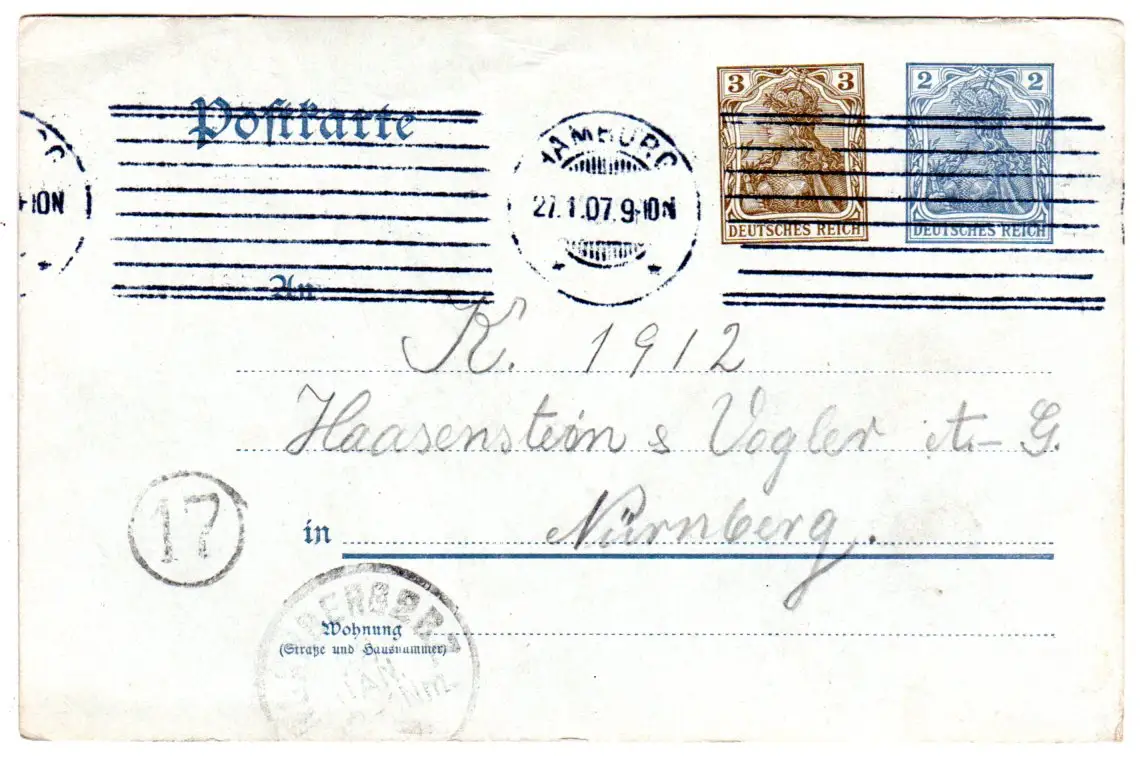 3 3
DEUTSCHES REICH
2 2
DEUTSCHES REICH
Postkarte
HAMBURG
27.1.07.9-10N
-10N
An
K. 1912
Haasenstein & Vogler A.-G.
in Nürnberg.
17
Wohnung
(Straße und Hausnummer)
JAN
Nm.